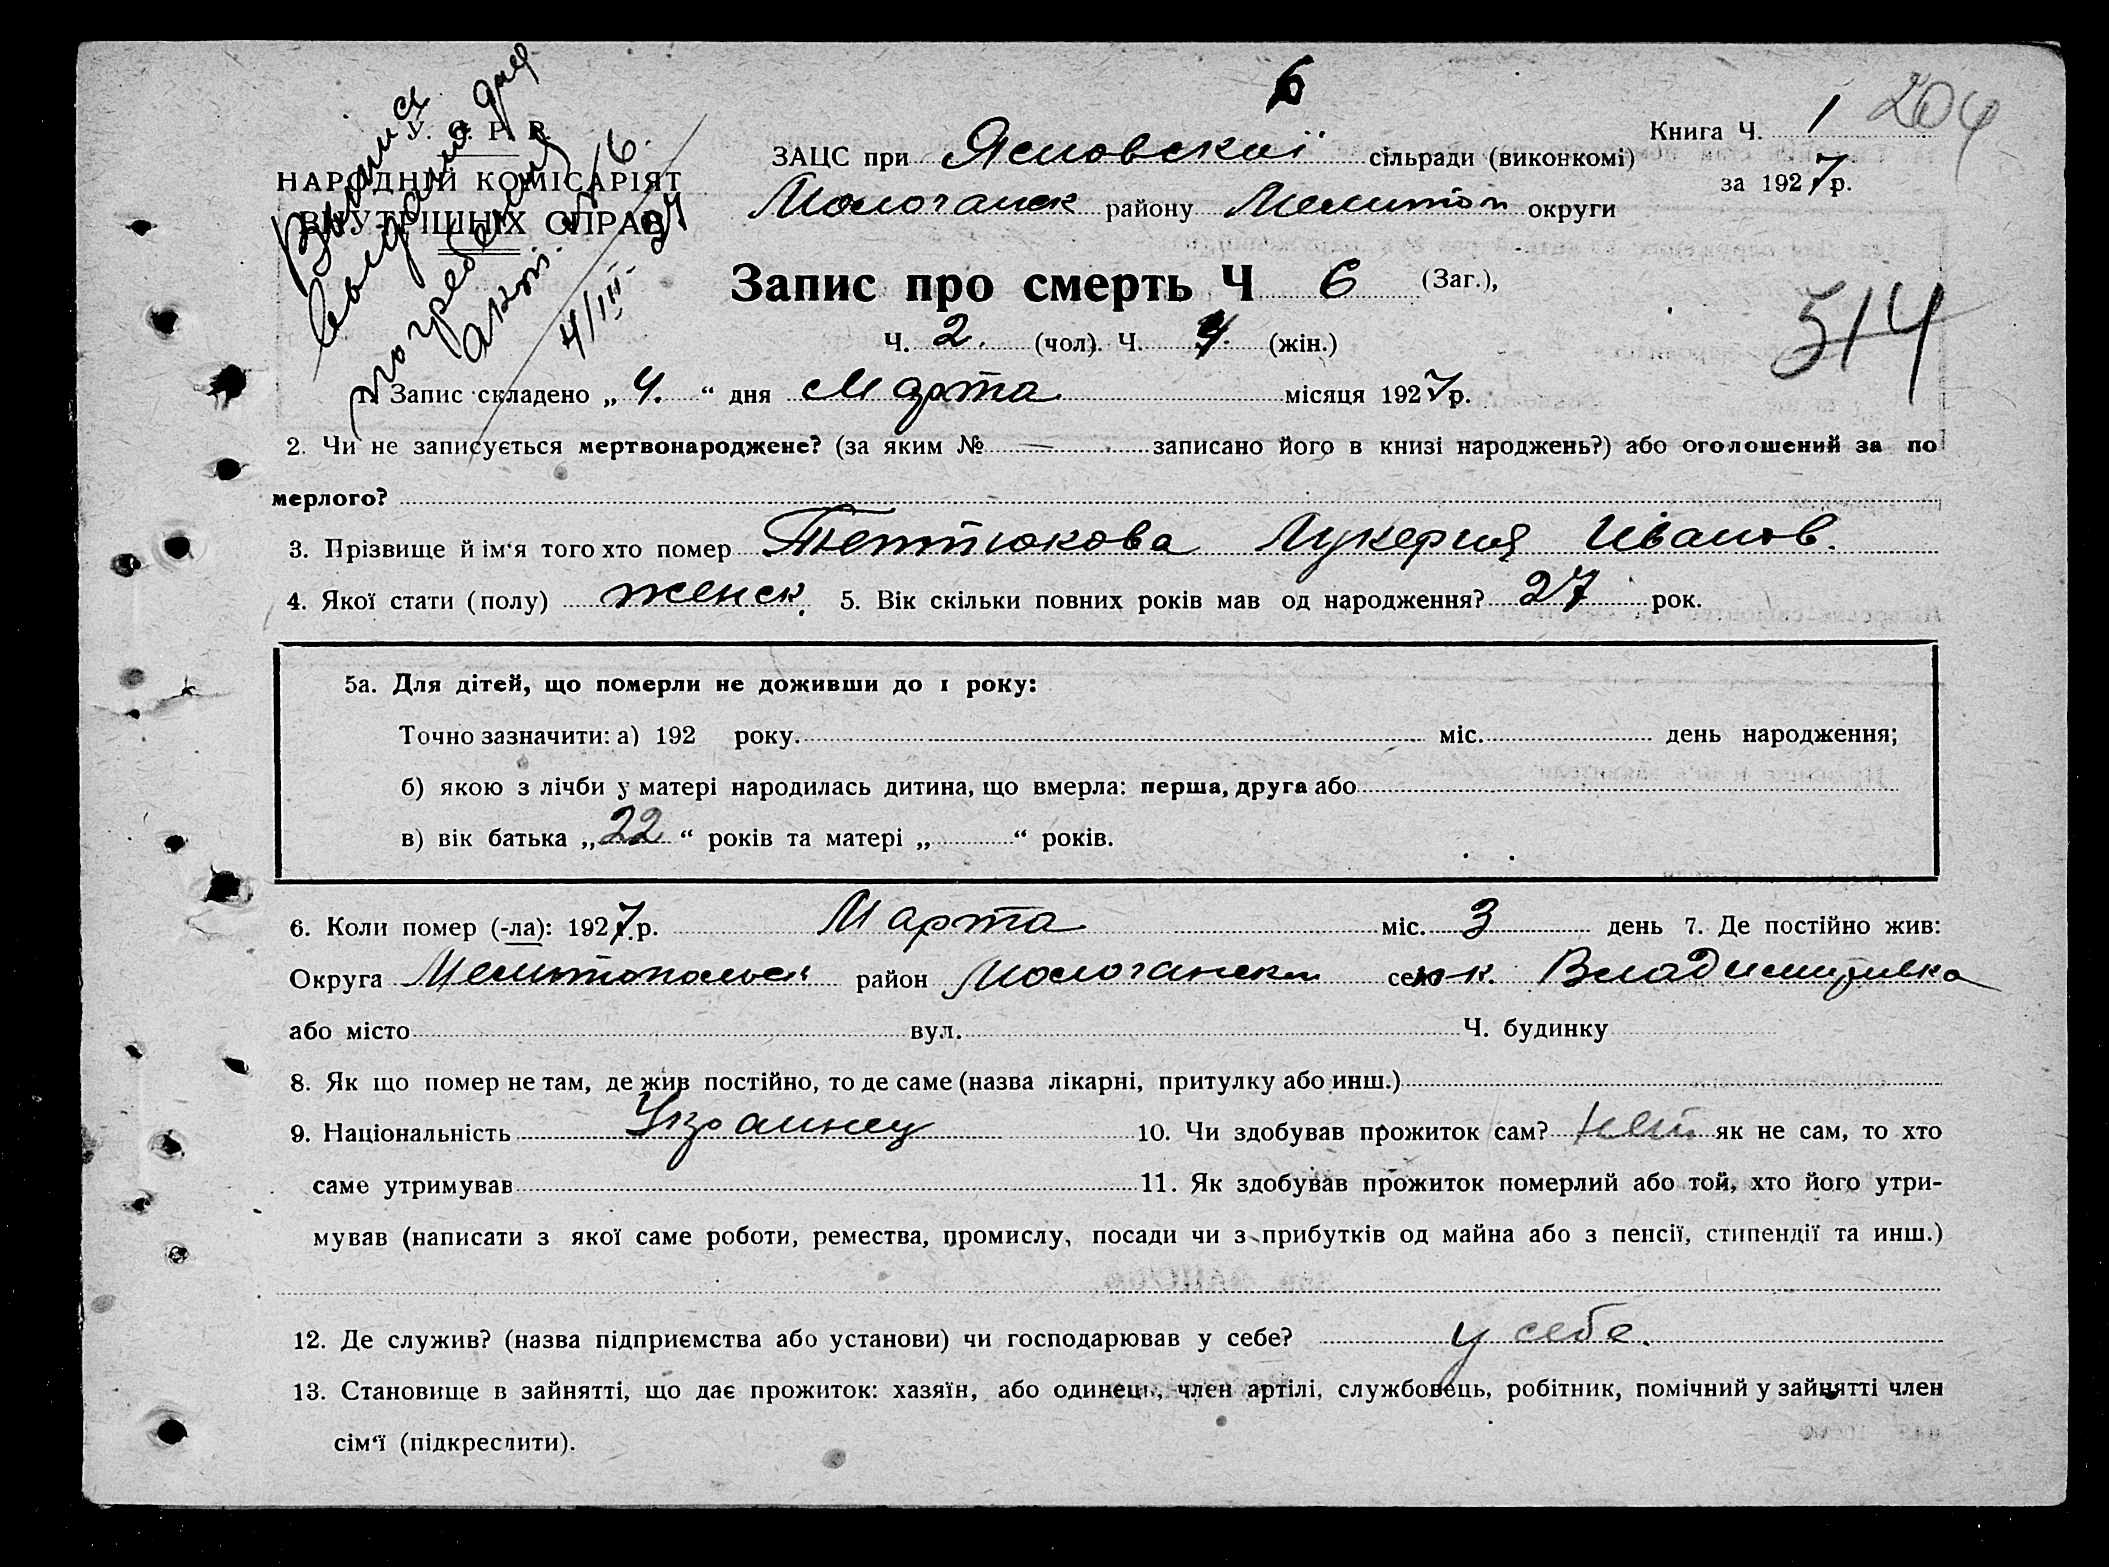 6
204
У. С. Р. Р.
НАРОДНІЙ КОМІСАРІЯТ
ВНУТРІШНІХ СПРАВ
Выпись
выдана для
погребения
акт. № 6.
4/III-27
ЗАЦС при Ясновской сільради (виконкомі)
Молочанск района Мелитоп округи
Книга Ч. 1
за 1927 р.
Запис про смерть Ч 6 (Заг.),
514
Ч. 2. (чол). Ч. 4. (жін.)
1. Запис складено „ 4. “ дня Марта місяця 1927 р.
2. Чи не записується мертвонароджене? (за яким № — записано його в книзі народжень?) або оголошений за по
мерлого?
3. Прізвище й ім‘я того хто помер Тептюкова Лукерия Иванов.
4. Якої стати (полу) женск. 5. Вік скільки повних років мав од народження? 27 рок.
5а. Для дітей, що померли не доживши до 1 року:
Точно зазначити: а) 192 року. міс. день народження;
б) якою з лічби у матері народилась дитина, що вмерла: перша, друга або
в) вік батька „ 22 “ років та матері „ “ років.
6. Коли помер (-ла): 1927 р. Марта міс. 3 день 7. Де постійно жив:
Округа Мелитопольск район Молочанск село к. Владимировка
або місто вул. Ч. будинку
8. Як що помер не там, де жив постійно, то де саме (назва лікарні, притулку або инш.)
9. Національність Украинец 10. Чи здобував прожиток сам? нет як не сам, то хто
саме утримував 11. Як здобував прожиток померлий або той, хто його утри-
мував (написати з якої саме роботи, ремества, промислу, посади чи з прибутків од майна або з пенсії, стипендії та инш.)
12. Де служив? (назва підприємства або установи) чи господарював у себе? у себе.
13. Становище в зайнятті, що дає прожиток: хазяїн, або одинець, член артілі, службовець, робітник, помічний у зайнятті член
сім‘ї (підкреслити).